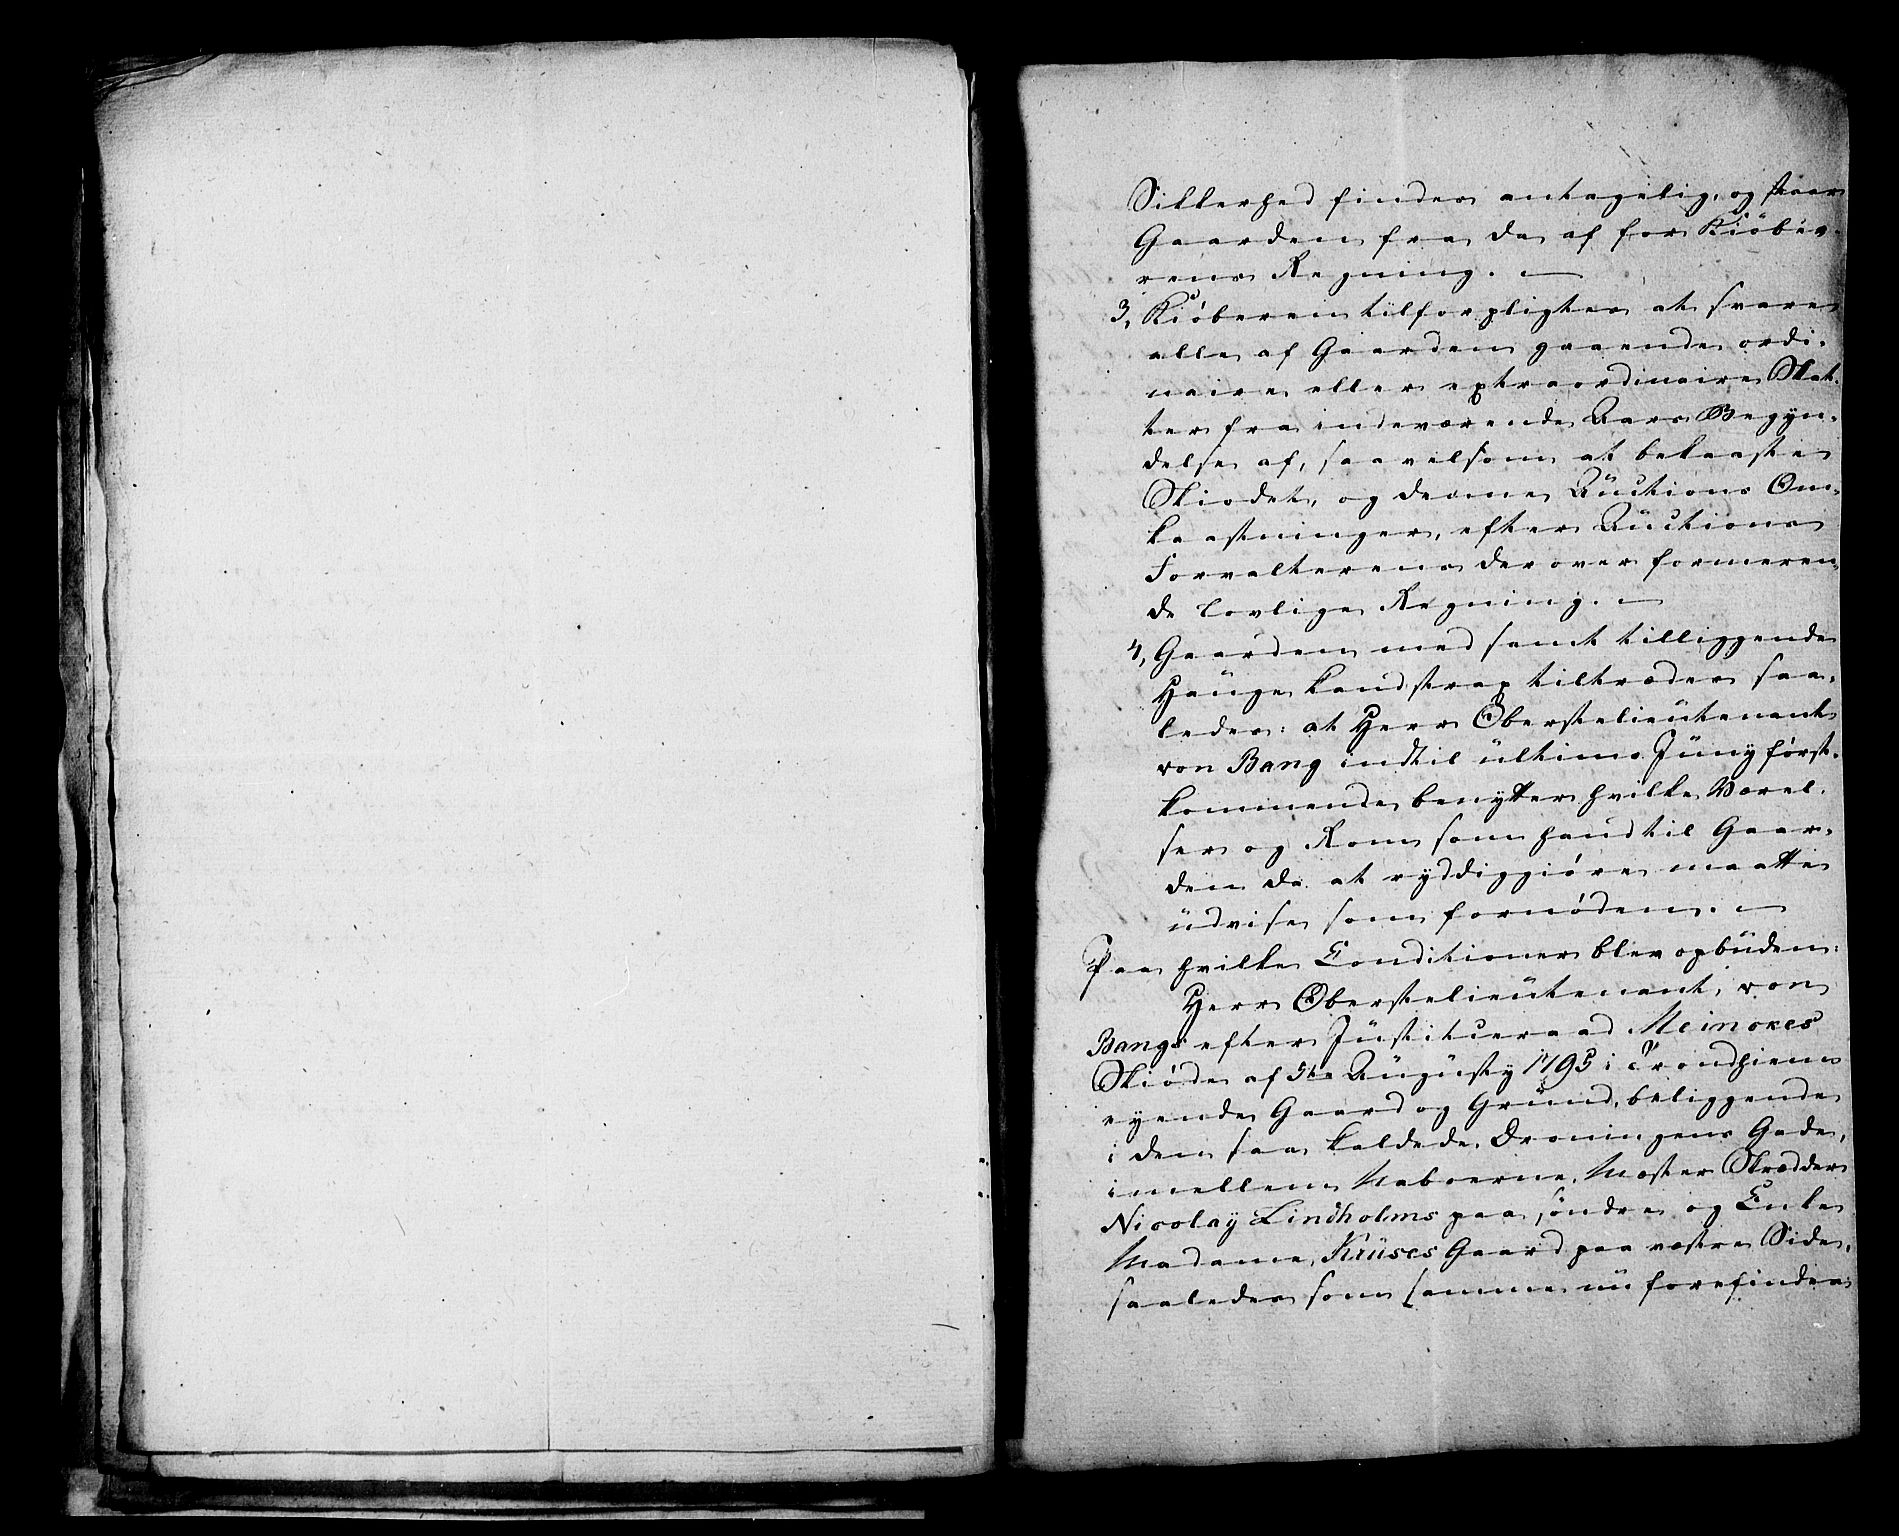 Sikkerhed findes antagelig, og staar
Gaarden fra da af for Kiöbe-
rens Regning. —
3, Kiöberen tilforpligtes at svare
alle af Gaarden gaaende ordi-
naire eller extraordinaire Skat-
ter fra indeværende Aars Begyn-
delse af, saavelsom at bekaaste
Skiødet, og denne Auctions Om-
kaastninger, efter Auctions
Forvalterens derover formeren-
de lovlige Regning. —
4, Gaarden med samt tilliggende
Hauge kand strax tiltrædes saa-
ledes: at Herr Oberstelieutenant
von Bang indtil ultimo Juny først-
kommende benytter hvilke Værel-
ser og Rom som hand til Gaar-
den da at ryddiggiøre maatte
udvise som fornøden. —
Paa hvilke Conditioner blev opbuden:
Herr Oberstelieutenant, von
Bangs efter Justitzeraad Meinckes
Skiøde af 5te Augusty 1795 i Trondhiem
eyende Gaard og Grund, beliggende
i den saa kaldede Dronningens Gade,
imellem Naboerne, Mester Skrædder
Nicolaÿ Lindholms paa søndre og Enke
Madame, Krüses Gaard paa vestre Side,
saaledes som samme nu forefindes